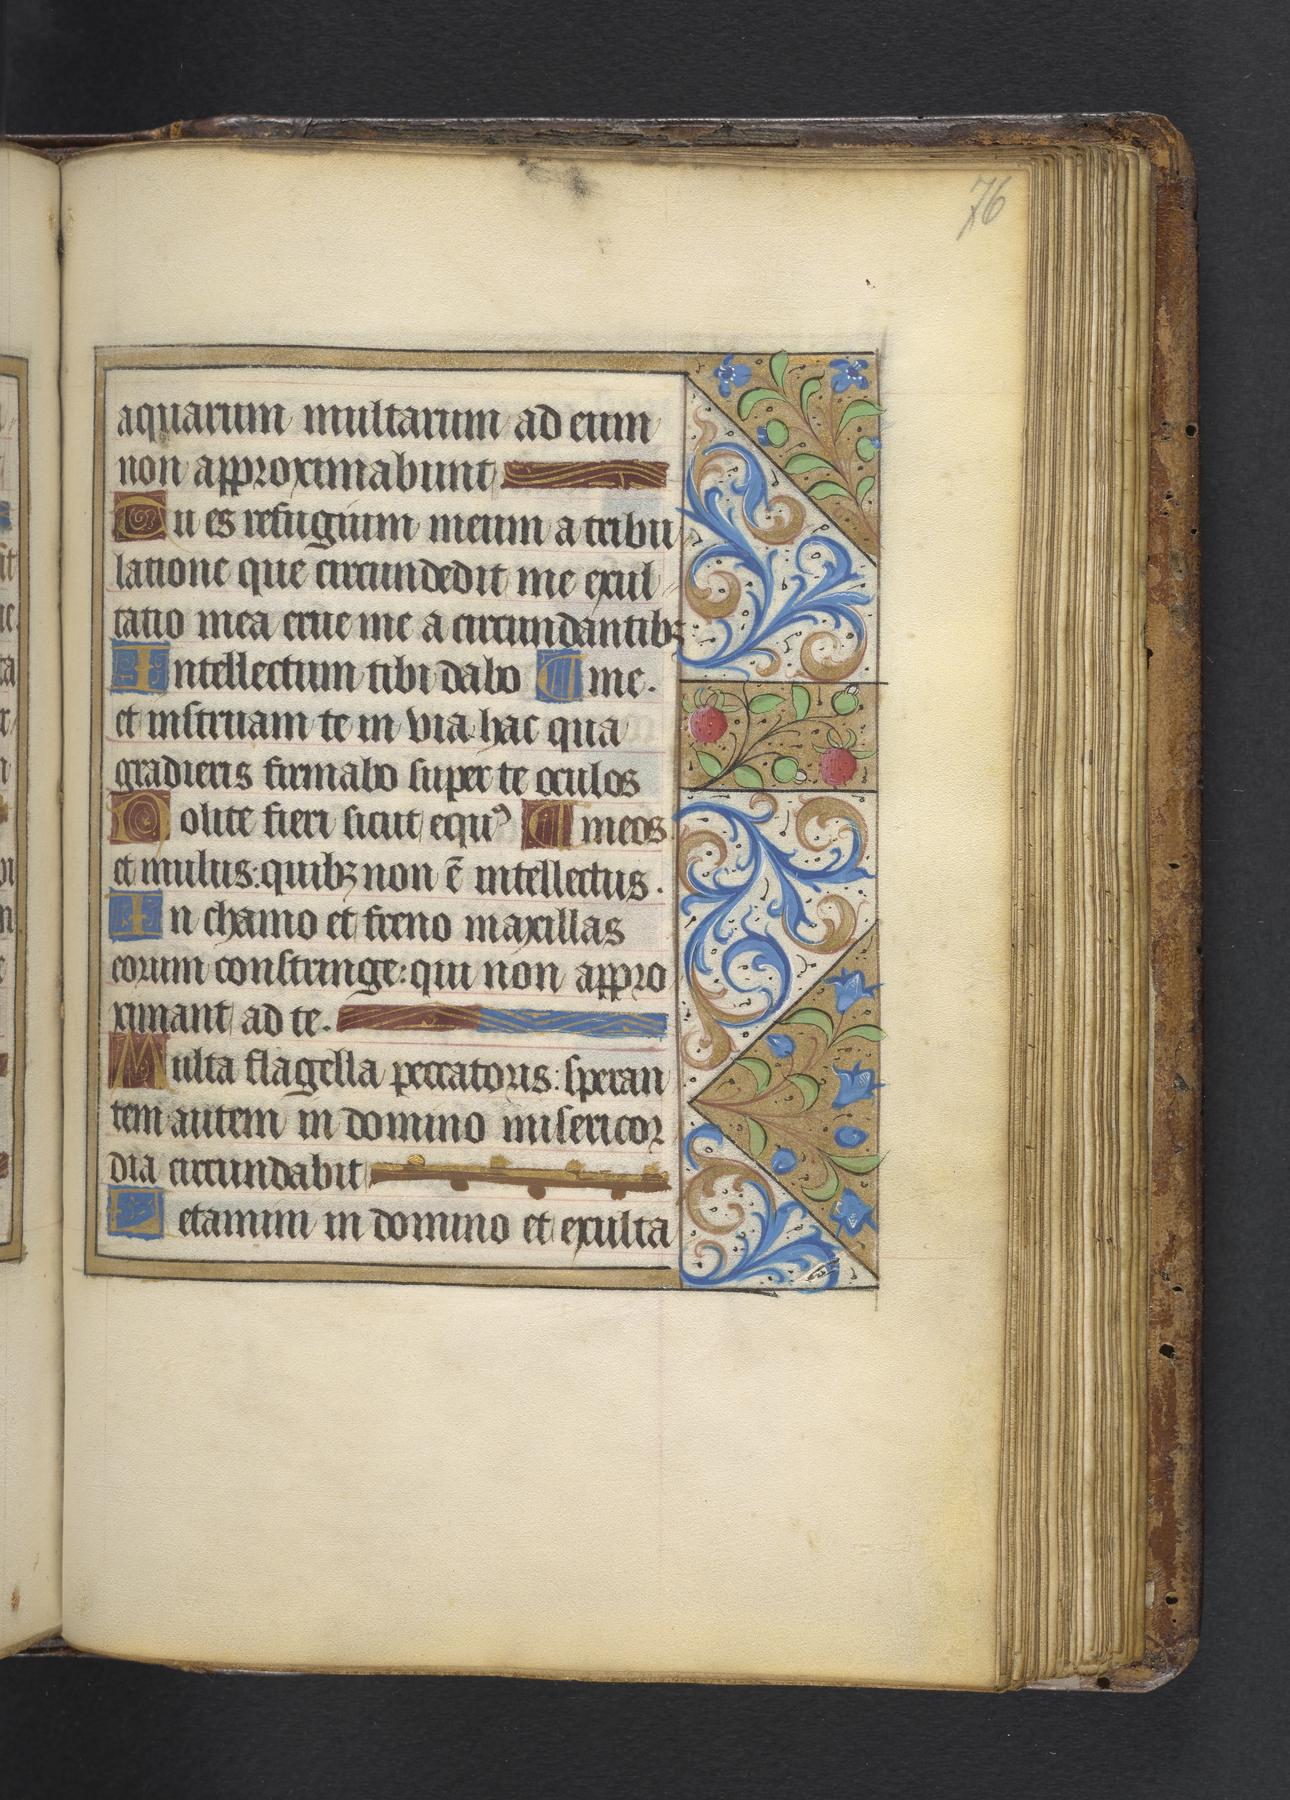 76
aquarum multarum ad eum
non approximabunt
Tu es refugium meum a tribu
latione que circundedit me exul
tatio mea erue me a circundantibꝫ
Intellectum tibi dabo me.
et instruam te in via hac qua
gradieris firmabo super te oculos
Nolite fieri sicut equꝰ meos
et mulus: quibꝫ non ē intellectus.
In chamo et freno maxillas
eorum constringe: qui non appro
ximant ad te.
Multa flagella peccatoris: speran
tem autem in domino misericor
dia circundabit
Letamini in domino et exulta